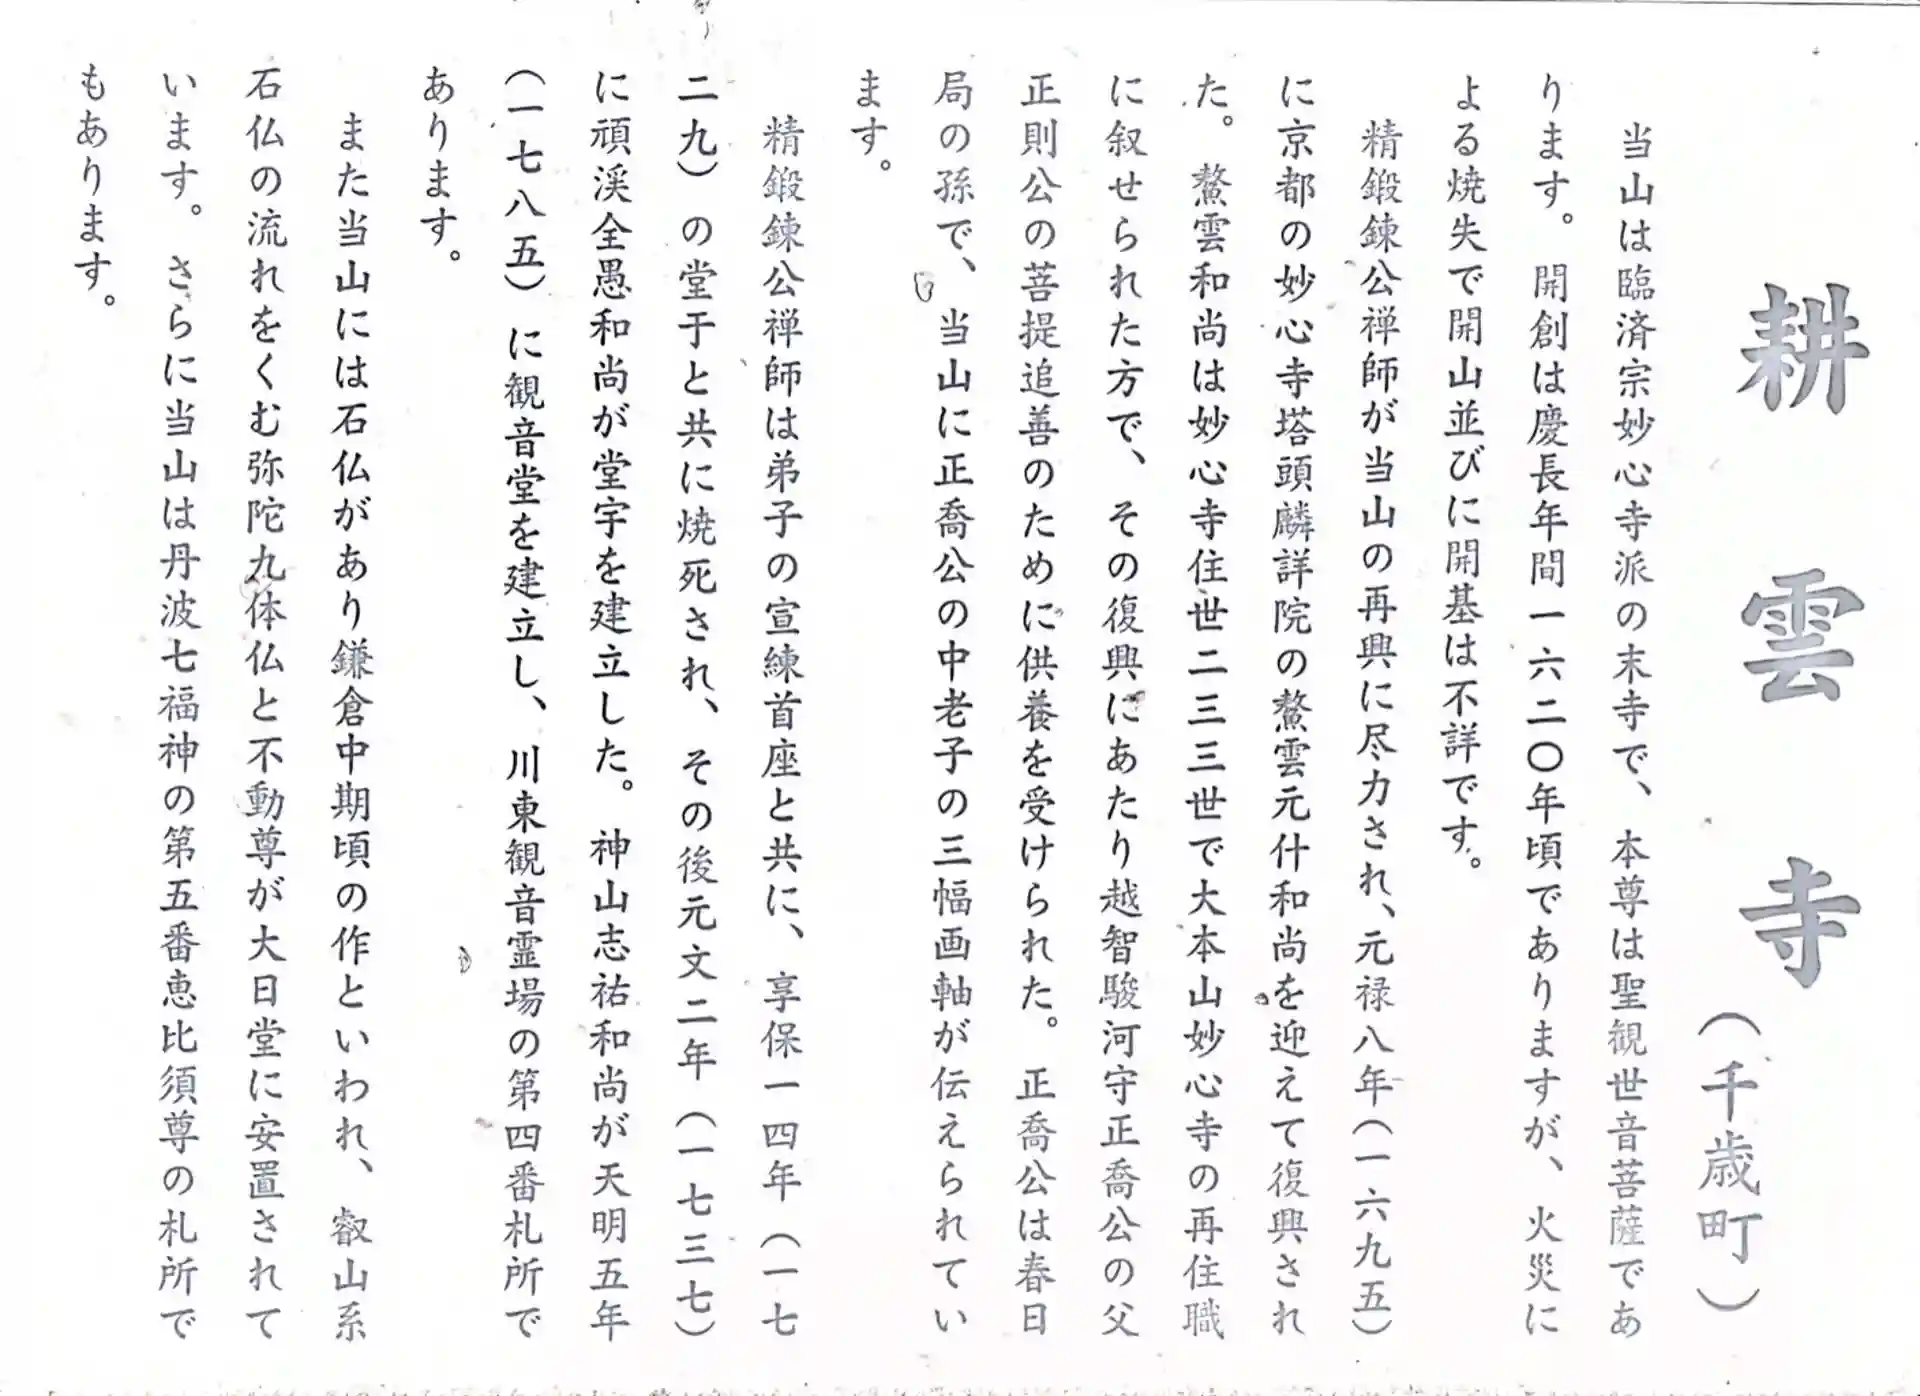 耕雲寺
(千歳町)
当山は臨済宗妙心寺派の末寺で、本尊は聖観世音菩薩であ
ります。開創は慶長年間一六二〇年頃でありますが、火災に
よる焼失で開山並びに開基は不詳です。
精鍛錬公禅師が当山の再興に尽力され、元禄八年(一六九五)
に京都の妙心寺塔頭麟詳院の鰲雲元什和尚を迎えて復興され
た。鰲雲和尚は妙心寺住世二三三世で大本山妙心寺の再住職
に叙せられた方で、その復興にあたり越智駿河守正喬公の父
正則公の菩提追善のために供養を受けられた。正喬公は春日
局の孫で、当山に正喬公の中老子の三幅画軸が伝えられてい
ます。
精鍛錬公禅師は弟子の宣練首座と共に、享保一四年(一七
二九)の堂于と共に焼死され、その後元文二年(一七三七)
に頑渓全愚和尚が堂宇を建立した。神山志祐和尚が天明五年
(一七八五)に観音堂を建立し、川東観音霊場の第四番札所で
あります。
また当山には石仏があり鎌倉中期頃の作といわれ、叡山系
石仏の流れをくむ弥陀九体仏と不動尊が大日堂に安置されて
います。さらに当山は丹波七福神の第五番恵比須尊の札所で
もあります。